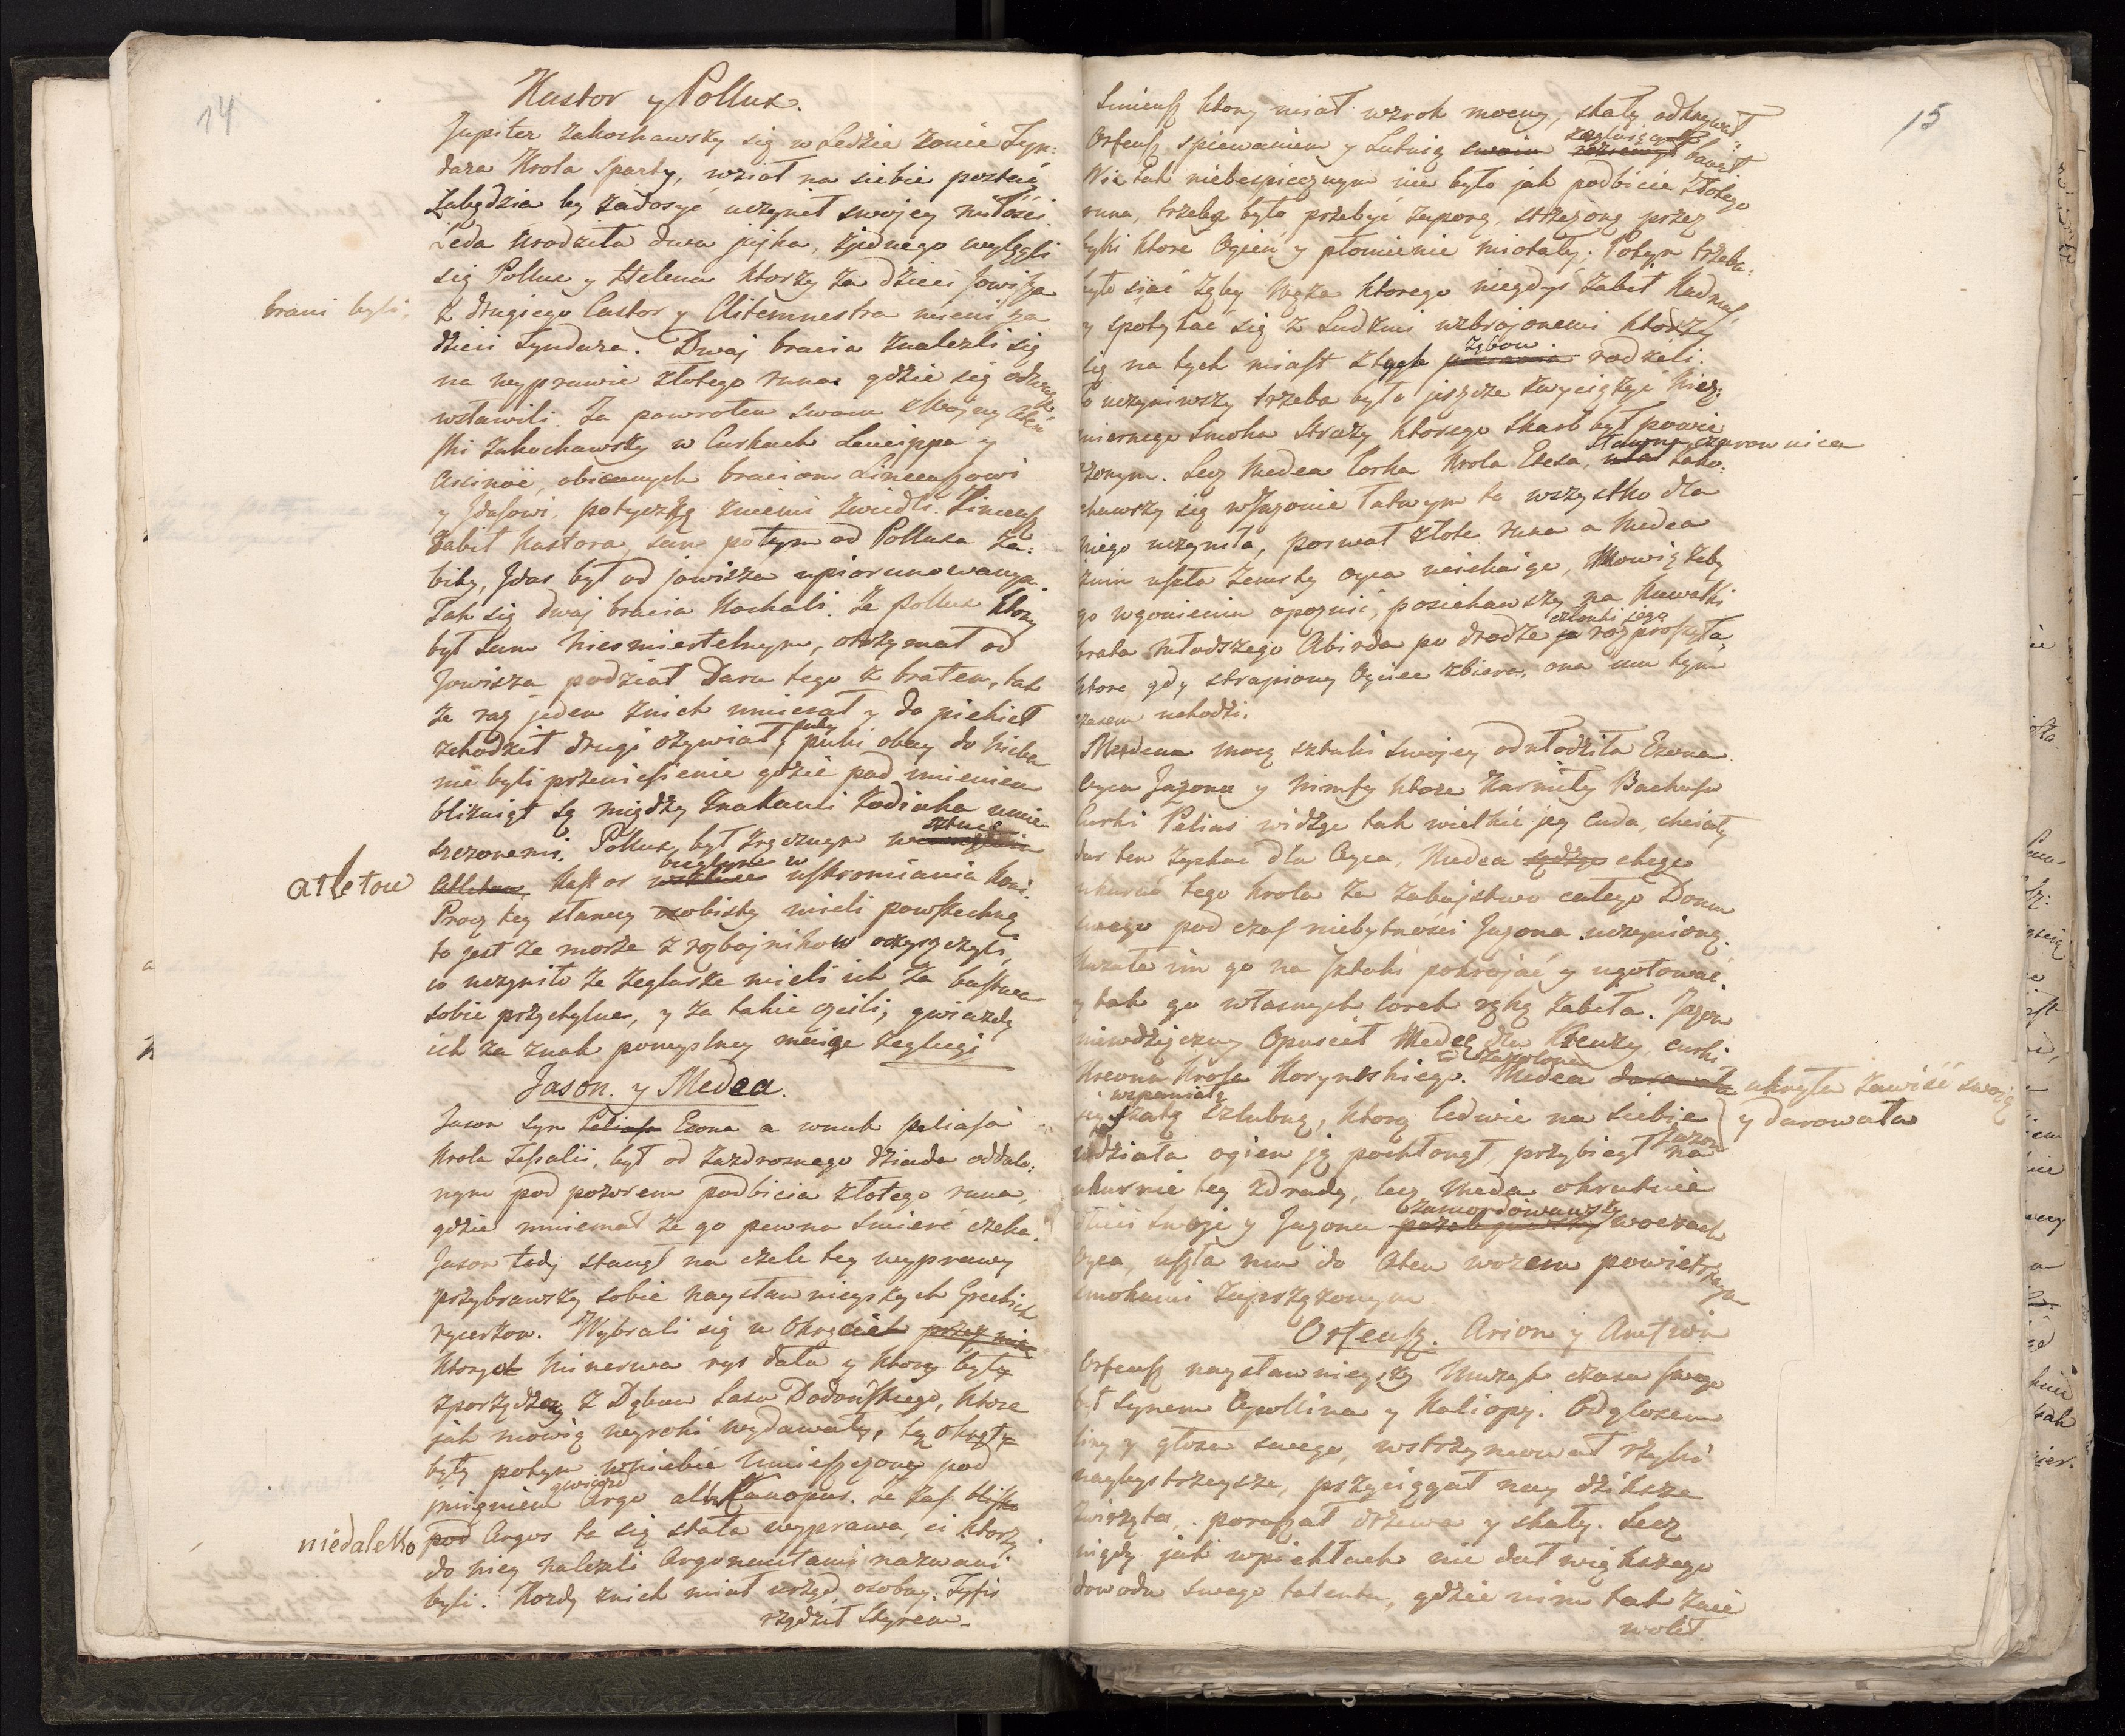 14
Kastor y Pollux.
Jupiter zakochawszy się w Ledzie żonie Tyn:
dara Krola Sparty, wział na siebie postać
Łabędzia by zadosyć uczynił swojey miłości.
Leda urodziła dwa jajka, zjednego wylęgli
się Pollux y Helena ktorzy za dzieci Jowisza
brani byli,
z drugiego Castor y Clitemnestra mieni za
dzieci Tyndara. Dwaj bracia znalezli się
na wyprawie złotego runa gdzie się odważ
wsławili. Za powrotem swoim
zakochawszy w Curkach Leucippa y
obiecanych braciom Linceuszowi
y Jdasowi, potyczkę zniemi zwiedli. Linceusz
zabił Kastora, sam potym od Polluxa za:
bity, Jdas był od jowisza upiorunowanym.
Tak się dwaj bracia Kochali. że Pollux ktory
był sam niesmiertelnym, otrzymał od
Jowisza podział Daru tego z bratem, tak
że raz jeden znich umierał y do piekieł
zchodził drugi ożywiał, puki obay do nieba
nie byli przeniesienie gdzie pod imieniem
blizniąt są między znakami Zodiaka umie
szczonemi. Pollux był zręcznym sztuce
atletow
atletow, Kastor bieglym w uskromiania koni.
Procz tey sławy osobisty mieli powszechną
to jest że morze z rozbojnikow oczyszczyli,
co uczyniło że żeglarze mieli ich za bustwa
sobie przychylne, y za takie czcili, gwiazdy
ich za znak pomyslney maiąc żeglugi
Jason. y Medea.
Jason syn Peliasa Ezona a wnuk peliasa
Krola Tessalii, był od zazdrosnego dziada oddalo:
nym pod pozorem podbicia złotego runa,
gdzie mniemał że go pewna smierć czeka.
Jason tedy stanął na czele tey wyprawy
przybrawszy sobie naysławnieyszych Greckich
rycerzow. Wybrali się w Okręcie przez nie
ktorych Minerwa rys dała y ktory były
zporządzony z Dębow Lasu Dodońskiego, ktore
jak mowią wyroki wydawały, tę okręty
były potym wniebie umieszczone pod
jmieniem gwiazd Argo albo Kanopus. że zaś blisko
niedaleko pod Argos ta się stała wyprawa, ci ktorzy
do niey nalezeli Argonautami nazwani
byli. Kozdy znich miał urząd osobny. Tyfis
rządził Styrem

15
Linceusz ktory miał wzrok mocny, skały odkrywał,
Orfeusz spiewaniem y Lutnią swoia żeglujących bawił
Nic tak niebespiecznym nie było jak podbicie złotego
runa, trzeba było przebyć zaporę, strzeżoną przez
byki ktore Ogień y płomienie miotały. Potym trzeba:
było siać Zęby Węża ktorego niegdyś zabił Kadmus,
y spotykać się z Ludzmi uzbrojonemi ktorzy
się na tych miast z tych zębow rodzili.
To uczyniwszy trzeba było jeszcze zwyciężyć niez:
miernego Smoka Straży ktorego Skarb był powie
rzonym. Lecz Medea Corka Krola Etesa, sławna czarownica zako:
chawszy się w Jazonie Łatwym to wszystko dla
niego uczyniła, porwał złote runa a Medea
znim uszła zemsty oyca uciekaiąc, Mowią żeby
go wgonieniu opoznić, posiekawszy na Kawałki
brata młodszego Absirda po drodze członki jego rozproszyła,
ktore, gdy strapiony Oyciec zbiera, ona mu tym
czasem uchodzi.
Medea mocą sztuki swojey odmłodziła Ezona
oyca Jazona y nimfy ktore karmiły Bachusa
Curki Pelias widząc tak wielkie jey cuda, chciały
dar ten zyskać dla Oyca, Medea chcąc
ukarać tego krola za zabojstwo całego Domu
swego pod czas niebytności Jazona uczynioną.
Kazała im go na sztuki pokrajać y ugotować
y tak go własnych corek ręką zabiła. Jazon
niewdzięczny Opuscił Medeę dla Kreuzy, curki
Kreona Krola Koryntskiego. Medea darowała ukryła zawiść swoją
jey wspaniałą szatę szlubną, ktorą ledwie na siebie y darowała
wdziała ogien ją pochłonął, przybiegł Jazon na
ukaranie tey zdrady, lecz Medea okrutnie
dzieci swoje y Jazona zamordowawszy woczach
oyca, uszła mu do Aten wozem powietrznym
smokami zaprzężonym
Orfeusz. Arion y Amfion
Orfeusz naysławnieyszy Muzyk czasu swego
był Synem Apollina y Kaliopy. Odgłosem
liry y głosu swego, wstrzymował rzyki
naybystrzeysze, przyciągał nay dziksze
zwirzęta, poruszał drzewa y skały. Lecz
nigdy jak wpiekłach nie dał większego
dowodu swego talentu, gdzie nim tak znie
wolił